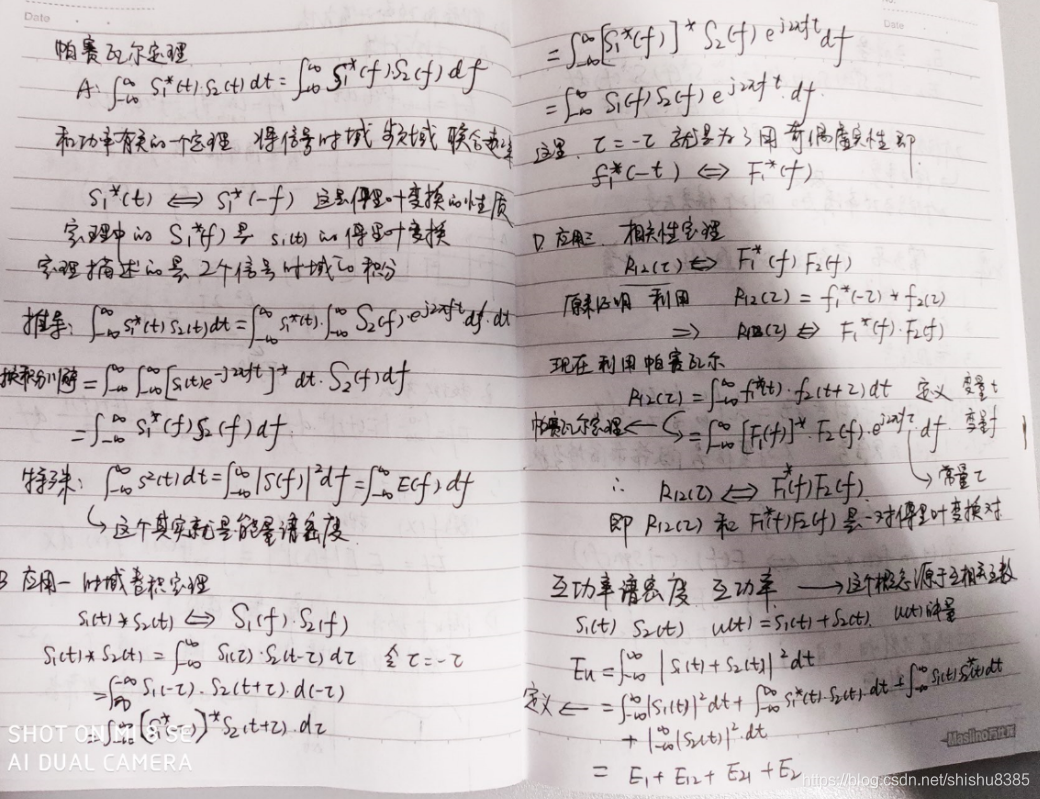 Date
帕赛瓦尔定理
A: ∫_{-∞}^{∞} S₁*(t)·S₂(t) dt = ∫_{-∞}^{∞} S₁*(f)·S₂(f) df
和功率有关的一个定理 将信号时域 频域 联合起来
S₁*(t) ⇔ S₁*(-f) 这是傅里叶变换的性质
定理中的 S₁*(f) 是 s₁(t) 的傅里叶变换
定理描述的是 2个信号时域的积分
推导: ∫_{-∞}^{∞} s₁*(t) s₂(t) dt = ∫_{-∞}^{∞} s₁*(t)·∫_{-∞}^{∞} S₂(f)·e^{j2πft} df·dt
换积分顺序 = ∫_{-∞}^{∞} ∫_{-∞}^{∞} [s₁(t) e^{-j2πft}]* dt·S₂(f) df
= ∫_{-∞}^{∞} S₁*(f) S₂(f) df.
特殊: ∫_{-∞}^{∞} s²(t) dt = ∫_{-∞}^{∞} |S(f)|² df = ∫_{-∞}^{∞} E(f) df
↳ 这个其实就是能量谱密度
B 应用一 时域卷积定理
s₁(t) * s₂(t) ⇔ S₁(f)·S₂(f)
S₁(t) * S₂(t) = ∫_{-∞}^{∞} S₁(τ)·S₂(t-τ) dτ 令 τ=-τ
= ∫_{∞}^{-∞} S₁(-τ)·S₂(t+τ)·d(-τ)
= ∫_{-∞}^{∞} (S₁*(-τ))* S₂(t+τ)·dτ
SHOT ON MI 8 SE
AI DUAL CAMERA
Date
= ∫_{-∞}^{∞} [S₁*(f)]* S₂(f) e^{j2πft} df
= ∫_{-∞}^{∞} S₁(f) S₂(f) e^{j2πft}·df.
这里. τ=-τ 就是为了用奇偶虚实性 即
f₁*(-t) ⇔ F₁*(f)
D 应用二 相关性定理
R₁₂(τ) ⇔ F₁*(f) F₂(f)
原来证明 利用 R₁₂(τ) = f₁*(-τ) * f₂(τ)
⇒ R₁₂(τ) ⇔ F₁*(f)·F₂(f)
现在利用帕赛瓦尔
R₁₂(τ) = ∫_{-∞}^{∞} f₁*(t)·f₂(t+τ) dt 定义 变量t
帕赛瓦尔定理 ← = ∫_{-∞}^{∞} [F₁(f)]*·F₂(f)·e^{j2πfτ} df 变量f
→ 常量τ
∴ R₁₂(τ) ⇔ F₁*(f) F₂(f)
即 R₁₂(τ) 和 F₁*(f) F₂(f) 是一对傅里叶变换对
互功率谱密度 互功率 → 这个概念源于互相关函数
S₁(t) S₂(t) u(t) = S₁(t) + S₂(t). u(t)能量
Eu = ∫_{-∞}^{∞} |S₁(t) + S₂(t)|² dt
定义 ← = ∫_{-∞}^{∞} |S₁(t)|² dt + ∫_{-∞}^{∞} S₁*(t)·S₂(t)·dt + ∫_{-∞}^{∞} S₁(t) S₂*(t) dt
+ ∫_{-∞}^{∞} |S₂(t)|²·dt
= E₁ + E₁₂ + E₂₁ + E₂
https://blog.csdn.net/shishu8385